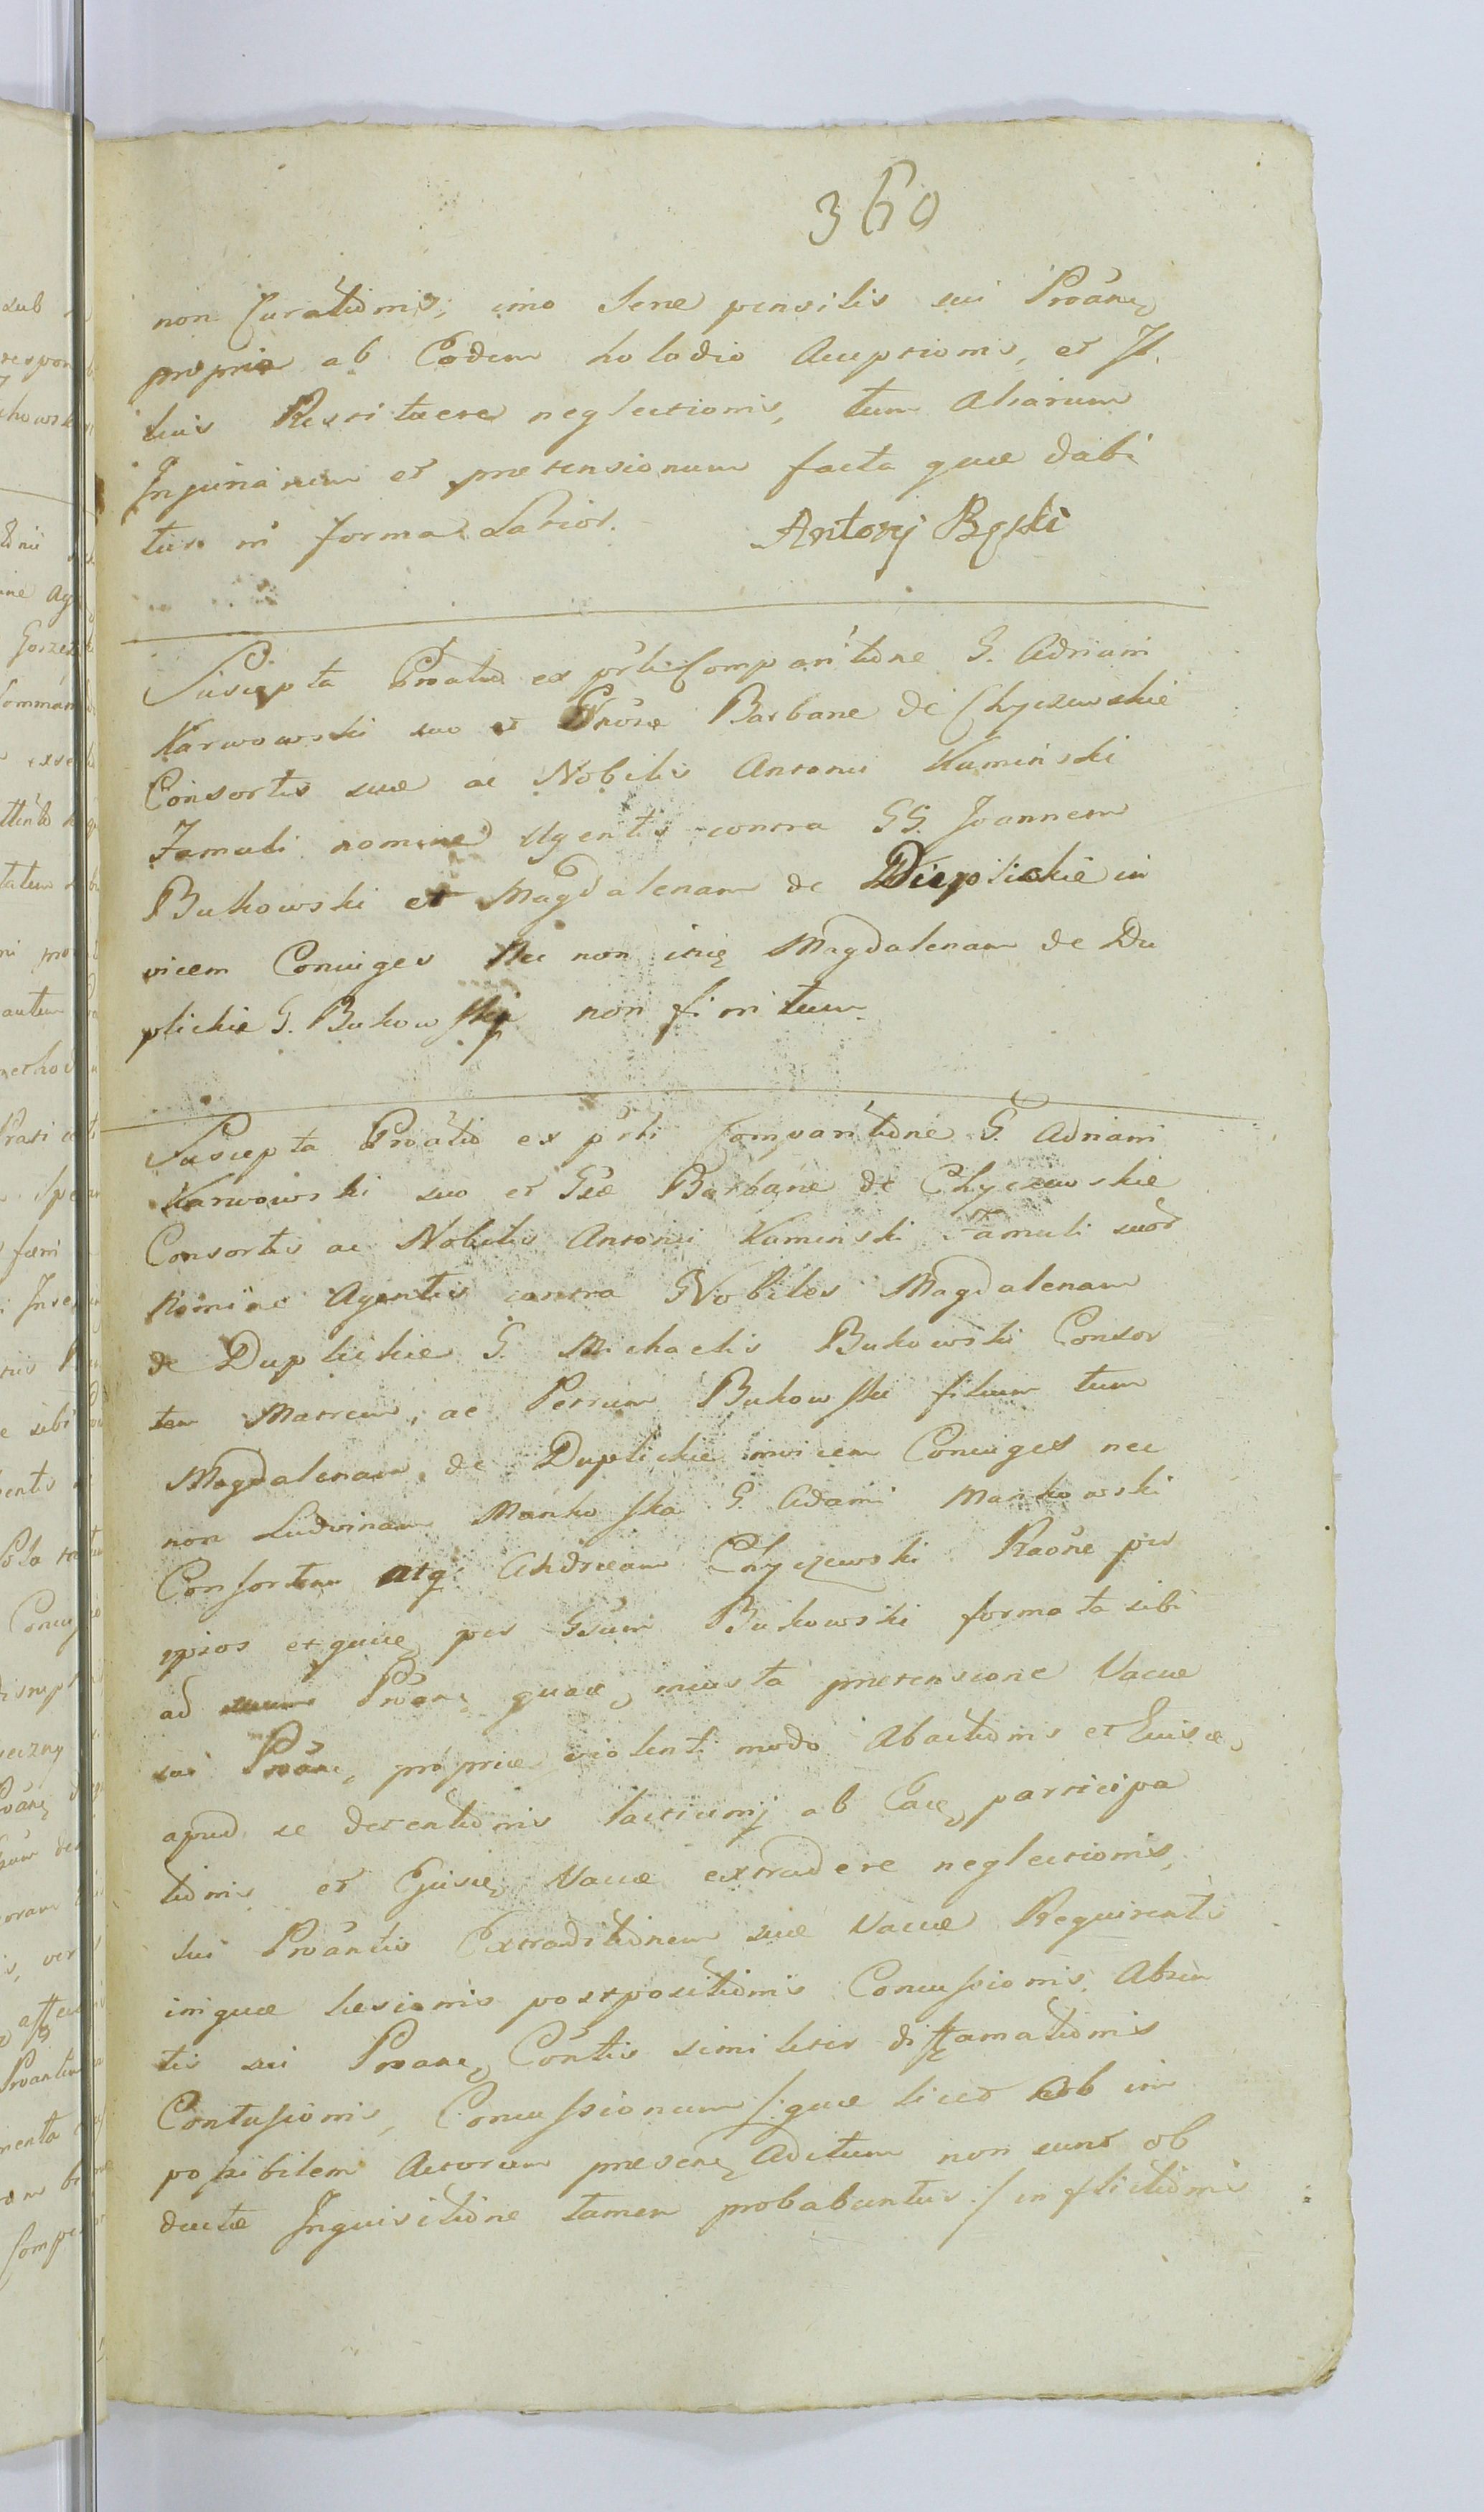 360
non Curationis, imo Sene pensilis sui Proãne
propria ab Eodem holodio Acceptionis, et Il
lius Restituere neglectionis, tum Aliarum
Injuriarum et pretensionum facta quæ dabi
tur in forma Latior. Antoni
Suscepta Proatio ex prti Comparitione G. Adriani
Karwowski suo et Gnõsæ Barbaræ de Chyczewskie
Consortis suæ ac Nobilis Antonii Kaminski
Famuli nomine Agentis contra GG. Joannem
Bukowski et Magdalenam de in
vicem Coniuges Nec non Magdalenam de Du
plickie G. Bukowski non finitum
Suscepta Proatio ex prti Comparitione G. Adriani
Karwowski suo et Gsæ Barbaræ de Chyczewskie
Consortis ac Nobilis Antonii Kaminski Famuli suor
Nomine Agentis contra GNobiles Magdalenam
de Duplickie G. Michaelis Bukowski Consor
tem Matrem, ac Petrum Bukowski filium tum
Magdalenam de Duplickie invicem Coniuges nec
non Ludvinam Mankoska G. Adami Mankowski
Consortem atq Andream Chyczewski Raõne per
ipsos etquæ per Gsum Bukowski formata sibi
ad Proãne quaæ, iniusta pretensione Vaccæ
sui Proãne, propriæ violenti modo Abactionis et Eiusæ,
apud se detentionis lacticinij ab Eaæ, participa
tionis et Ejusæ, Vaccæ extradere neglectionis,
sui Proantis Extraditionem suæ Vaccæ Requirentis
inique læsionis postpositionis Concussionis, Absen
tis sui Proane, Cõntis similiter diffamationis
Contusionis, Concussionum /: quæ licet ob im
possibilem Actorum presene, Aditum non sunt ob
ductæ Inquisitione tamen probabuntur :/ inflictionis